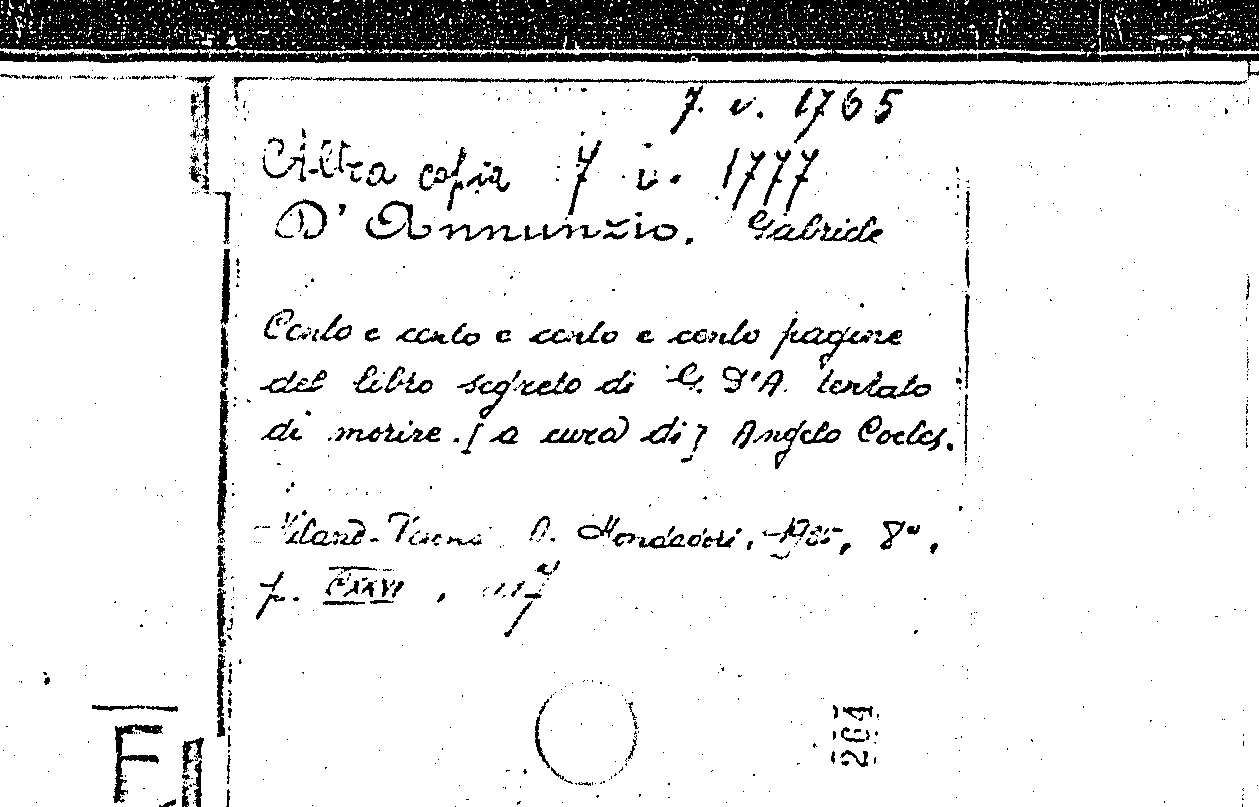 7. v. 1765
Altra copia 7 v. 1777
D'Annunzio. Gabriele
Cento e cento e cento e cento pagine
del libro segreto di G. D'A. tentato
di morire. [a cura di] Angelo Cocles.
Milano-Verona A. Mondadori, 1935, 8°,
p. CXXVI,
204